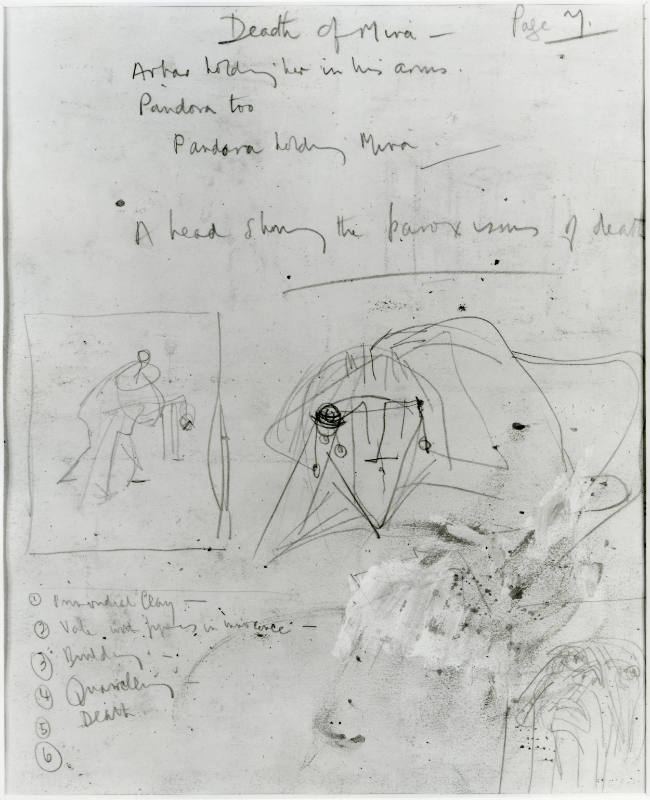 Death of Mira –
Page 7.
holding her in his arms.
Pandora too
Pandora holding Mira
A head showing the paroxisms of death
① Primordial Clay –
② with figures in innocence –
③ Building –
④ Quarrelling –
⑤ Death
⑥